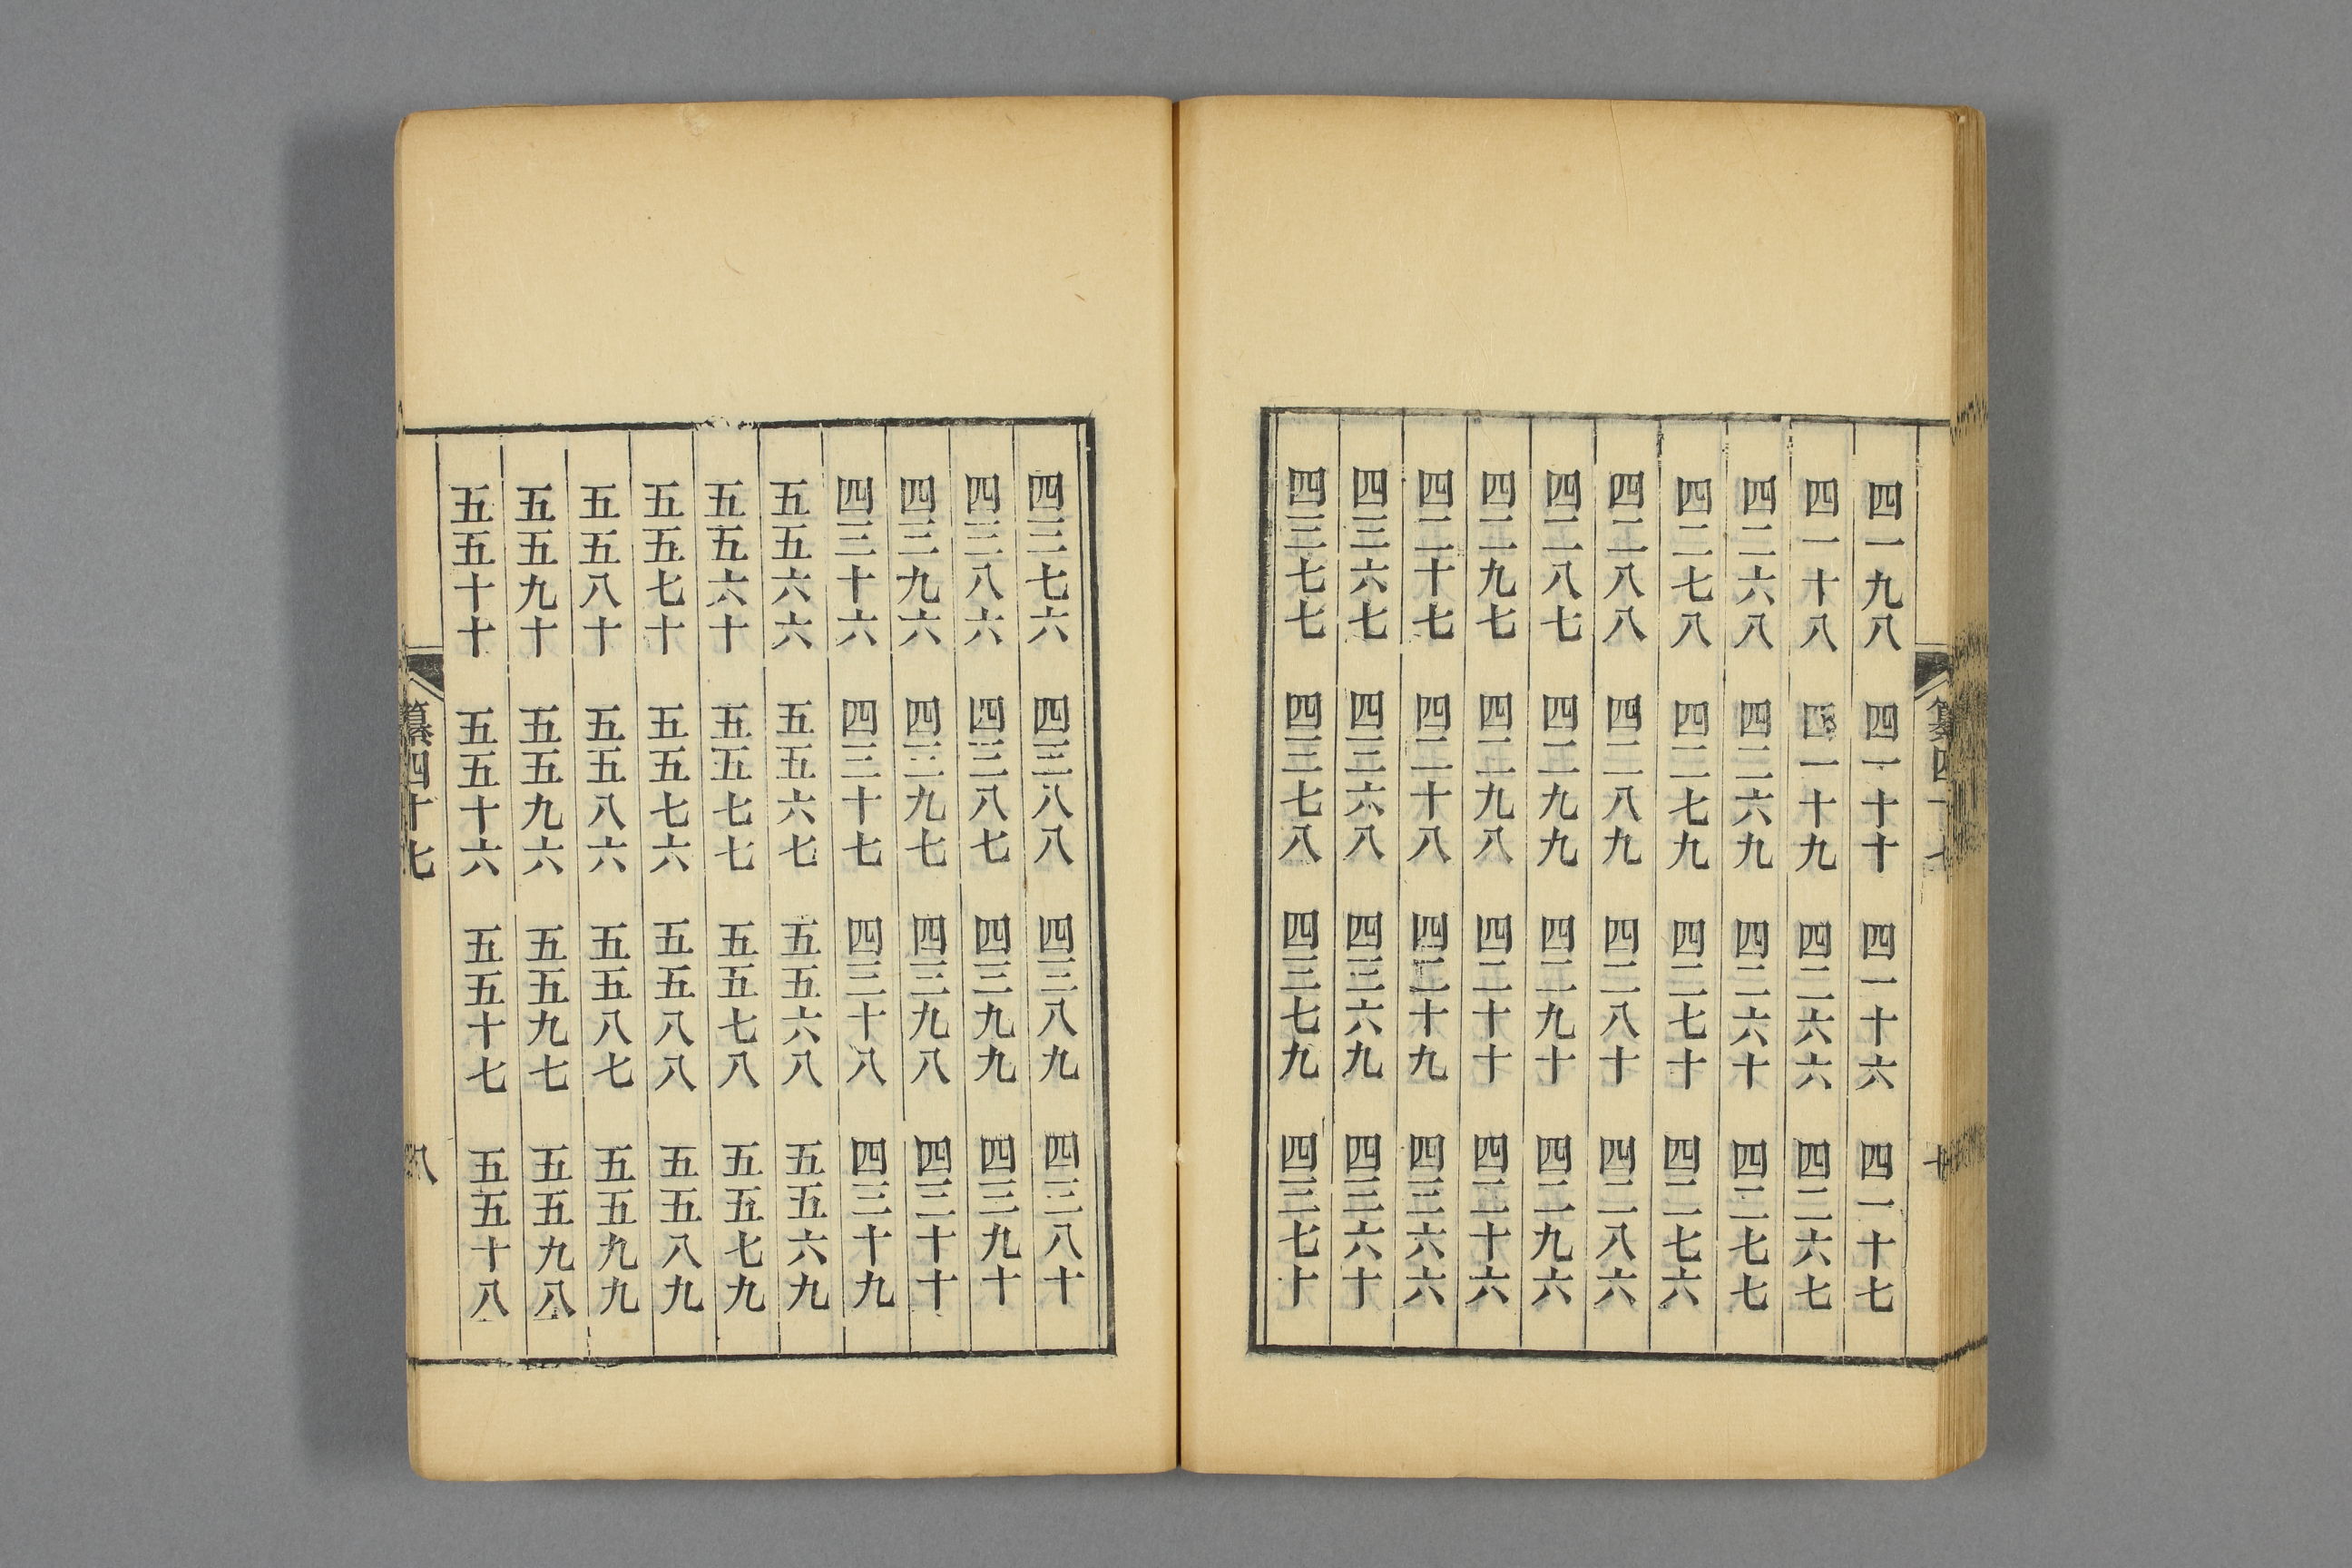 四一九八 四一十十 四一十六 四一十七
四一十八 四一十九 四二六六 四二六七
四二六八 四二六九 四二六十 四二七七
四二七八 四二七九 四二七十 四二七六
四二八八 四二八九 四二八十 四二八六
四二八七 四二九九 四二九十 四二九六
四二九七 四二九八 四二十十 四二十六
四二十七 四二十八 四二十九 四三六六
四三六七 四三六八 四三六九 四三六十
四三七七 四三七八 四三七九 四三七十
四三七六 四三八八 四三八九 四三八十
四三八六 四三八七 四三九九 四三九十
四三九六 四三九七 四三九八 四三十十
四三十六 四三十七 四三十八 四三十九
五五六六 五五六七 五五六八 五五六九
五五六十 五五七七 五五七八 五五七九
五五七十 五五七六 五五八八 五五八九
五五八十 五五八六 五五八七 五五九九
五五九十 五五九六 五五九七 五五九八
五五十十 五五十六 五五十七 五五十八
纂四十七 八